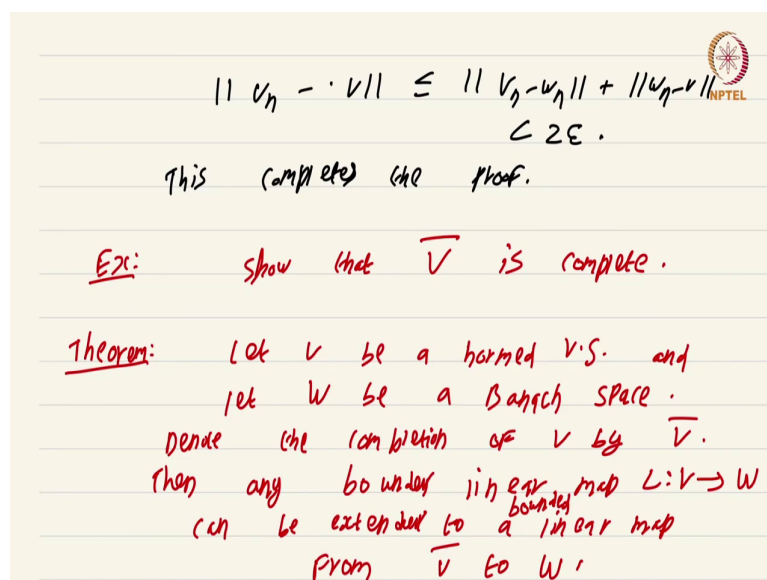 || vₙ - · v|| ≤ || vₙ-wₙ || + ||wₙ-v||
NPTEL
< 2ε .
This completes the proof.
Ex: show that V̅ is complete .
Theorem: let V be a normed V.S. and
let W be a Banach space .
Denote the completion of V by V̅.
Then any bounded linear map L:V→W
bounded
can be extended to a linear map
from V̅ to W.